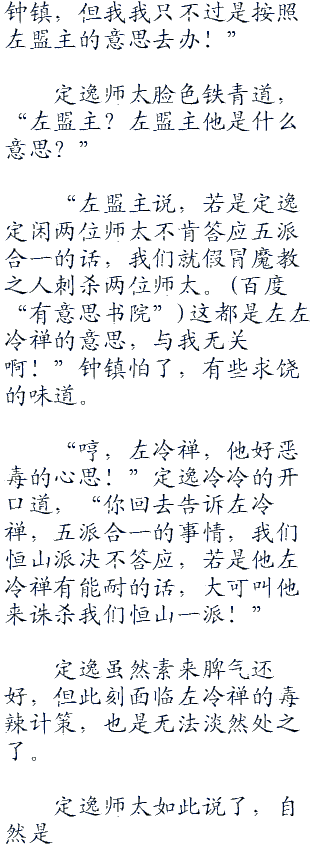 钟镇，但我我只不过是按照
左盟主的意思去办！”
定逸师太脸色铁青道，
“左盟主？左盟主他是什么
意思？”
“左盟主说，若是定逸
定闲两位师太不肯答应五派
合一的话，我们就假冒魔教
之人刺杀两位师太。(百度
“有意思书院”)这都是左左
冷禅的意思，与我无关
啊！”钟镇怕了，有些求饶
的味道。
“哼，左冷禅，他好恶
毒的心思！”定逸冷冷的开
口道，“你回去告诉左冷
禅，五派合一的事情，我们
恒山派决不答应，若是他左
冷禅有能耐的话，大可叫他
来诛杀我们恒山一派！”
定逸虽然素来脾气还
好，但此刻面临左冷禅的毒
辣计策，也是无法淡然处之
了。
定逸师太如此说了，自
然是